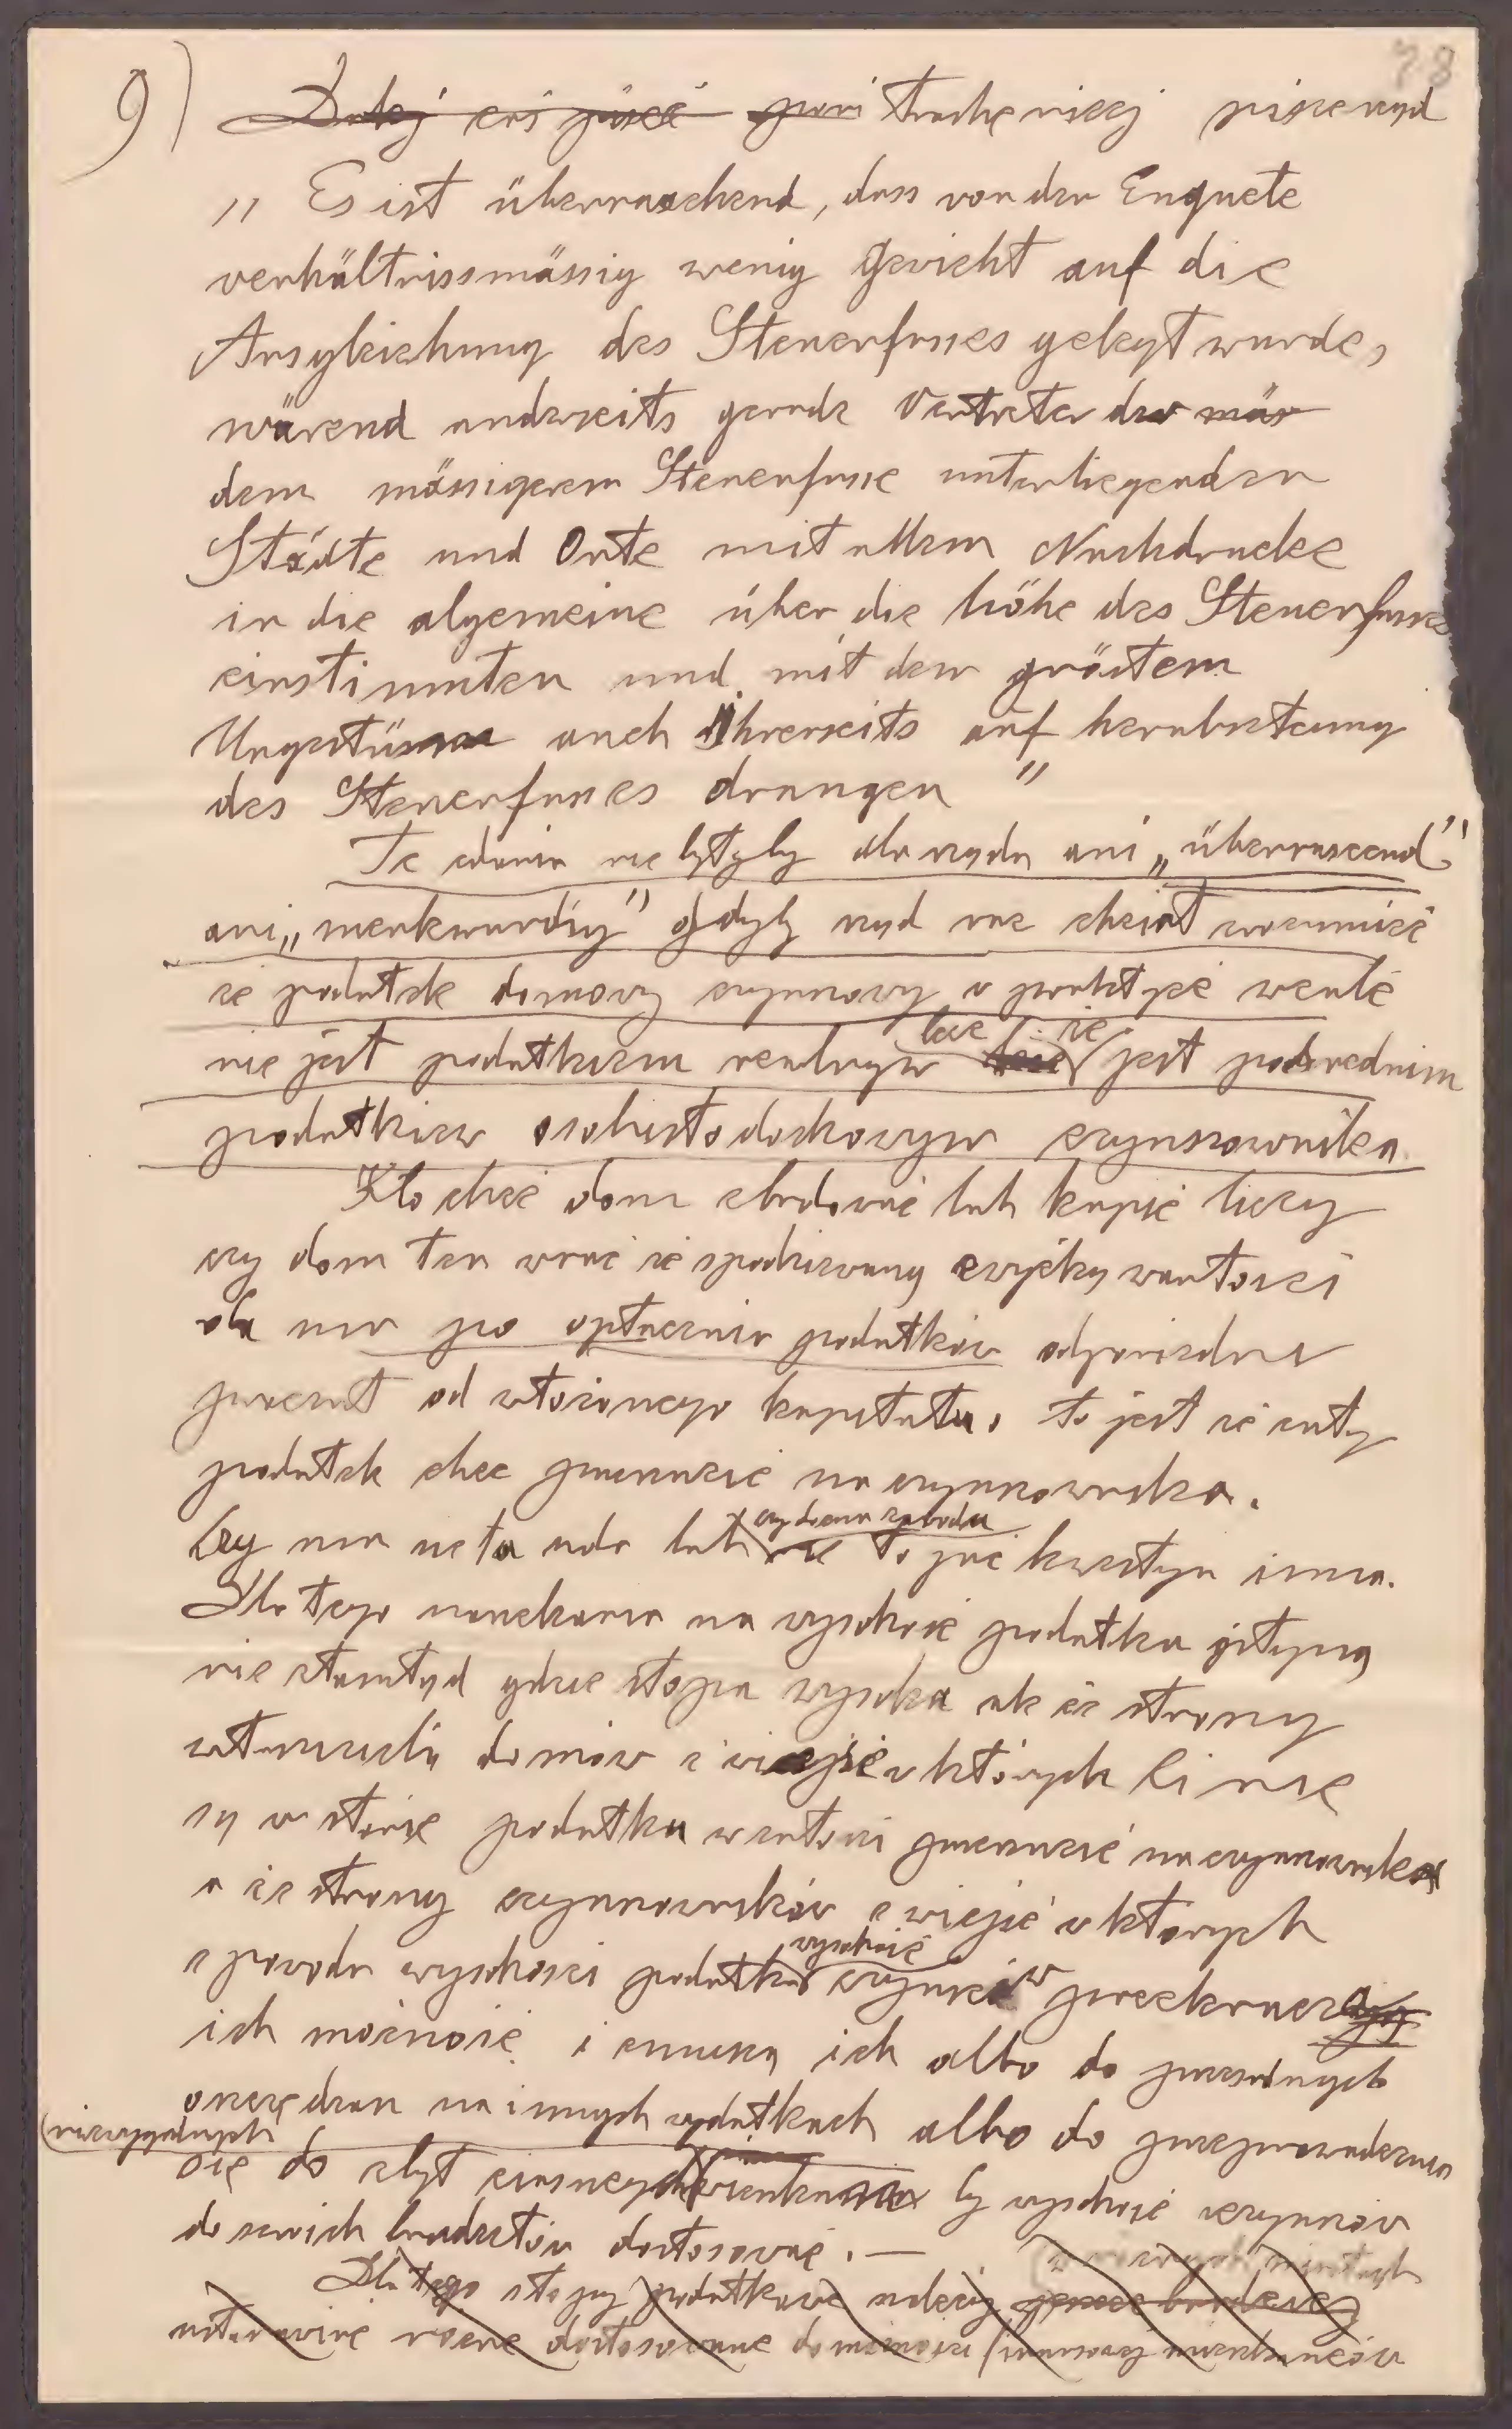 78
9) Dalej coś pisać pani trochę niżej pisze rząd
„ Es ist überraschend, dass von der Enquete
verhältnissmässig wenig Gewicht auf die
Ausgleichung des Steuerfusses gelegt wurde,
wärend anderseits gerade Vertreter der mäs
dem mässigerem Steuerfusse unterliegenden
Städte und Orte mit allem Nachdrucke
in die algemeine über die höhe des Steuerfusses
einstimmten und mit dem gröstem
Ungestüm auch Ihrerseits auf herabsetzung
des Steuerfusses drangen "
Te zdania nie byłyby dla rządu ani „überrascend"
ani „merkwurdig" gdyby rząd raz chciał zrozumieć
że podatek domowy czynszowy w praktyce wcale
nie jest podatkiem realnym lecz że jest pośrednim
podatkiem osobistodochowym czynszownika.
Kto chce dom zbudować lub kupić liczy
czy dom ten wraz ze spodziewaną zwyżką wartości
da mu po opłaceniu podatków odpowiedni
procent od włożonego kapitału, to jest że cały
podatek chce przerzucić na czynszownika.
Czy mu się to uda lub nie to już kwestya inna.
Dla tego narzekania na wysokość podatku płyną
nie ztamtąd gdzie stopa wysoka ale ze strony
właścicieli domów z miejsc w których ci nie
są w stanie podatku w całości przerzucić na czynszownika
a ze strony czynszowników z miejsc w których
z powodu wysokości podatku wysokość czynszów przekracza
ich możność i zmusza ich albo do przesadnych
oszczędzań na innych wydatkach albo do przeprowadzania
(niewygodnych
się do zbyt ciasnych by wysokość czynszów
do swoich budżetów dostosować. —
Dla tego stopy podatkowe należy
ustanowić różne dostosowane do możności mieszkańców